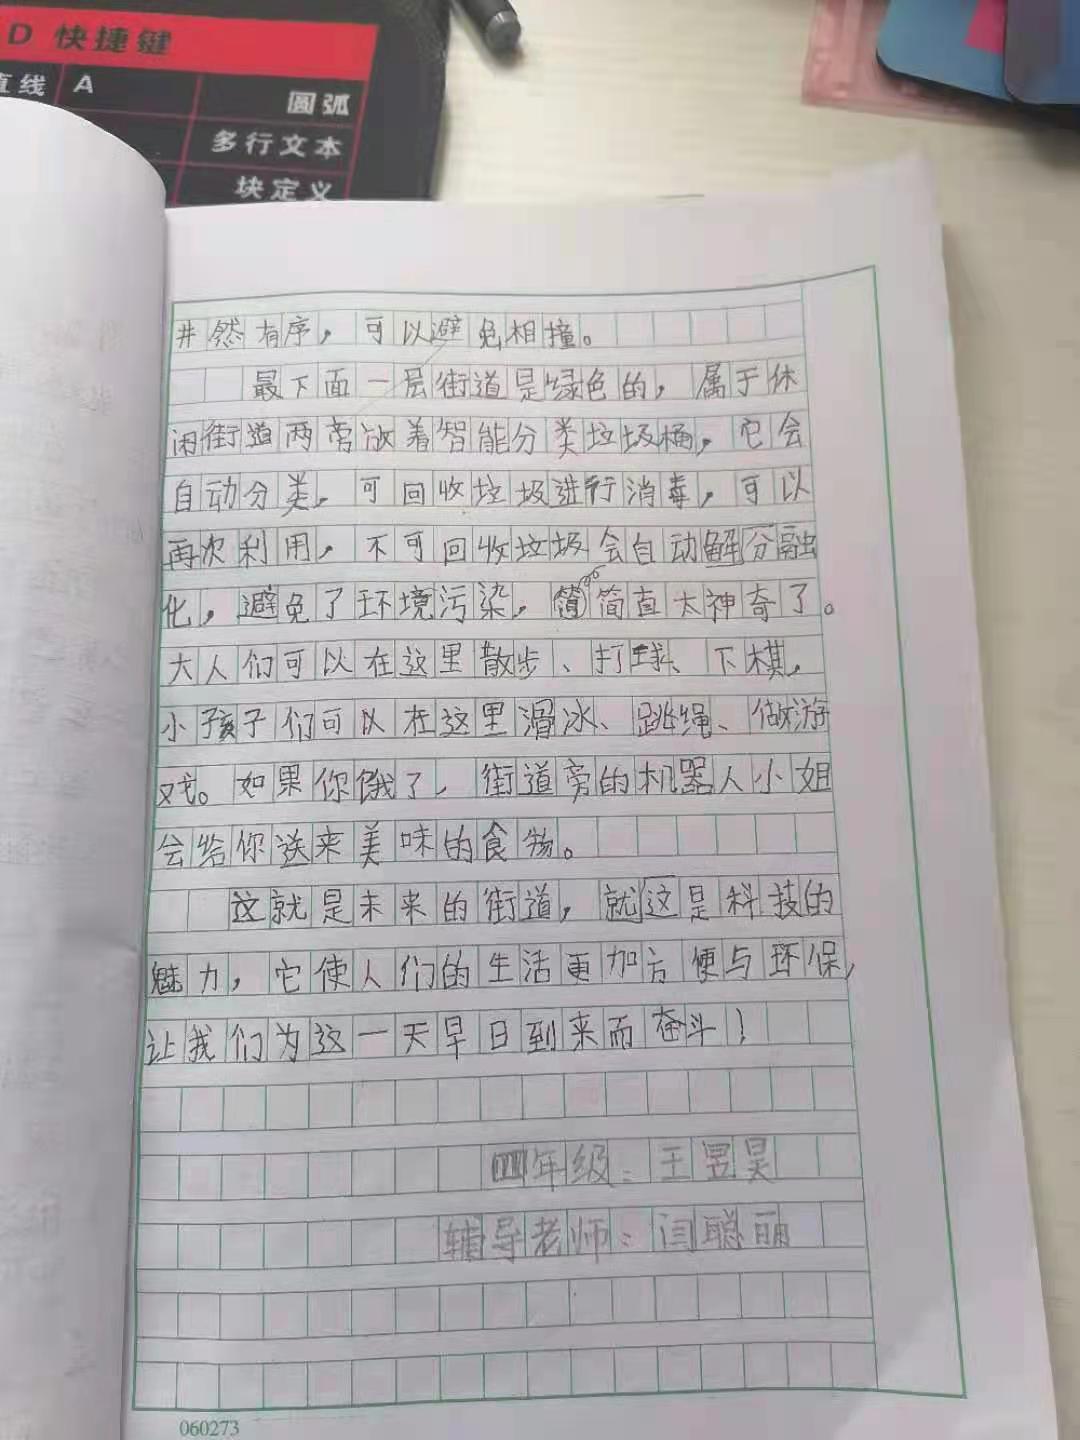 D 快捷键
直线 A 圆弧
多行文本
块定义
井然有序，可以避免相撞。
最下面一层街道是绿色的，属于休
闲街道两旁放着智能分类垃圾桶，它会
自动分类，可回收垃圾进行消毒，可以
再次利用，不可回收垃圾会自动解分融
化，避免了环境污染，简直太神奇了。
大人们可以在这里散步、打球、下棋，
小孩子们可以在这里滑冰、跳绳、做游
戏。如果你饿了，街道旁的机器人小姐
会给你送来美味的食物。
这就是未来的街道，就这是科技的
魅力，它使人们的生活更加方便与环保，
让我们为这一天早日到来而奋斗！
四年级：王昱昊
辅导老师：闫聪丽
060273